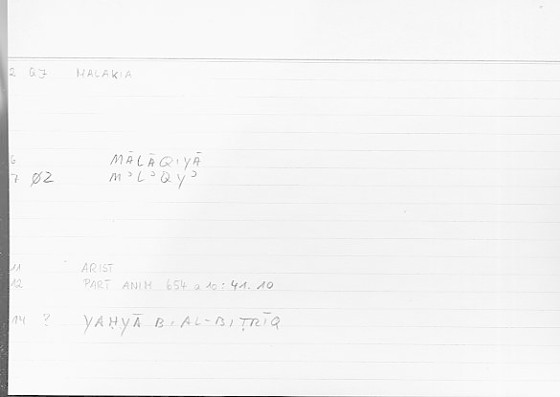 2 QZ MALAKIA
6 MĀLĀQIYĀ
7 ØZ MʾLʾQYʾ
11 ARIST
12 PART ANIM 654 a 10: 41.10
14 ? YAḤYĀ B. AL-BIṬRĪQ